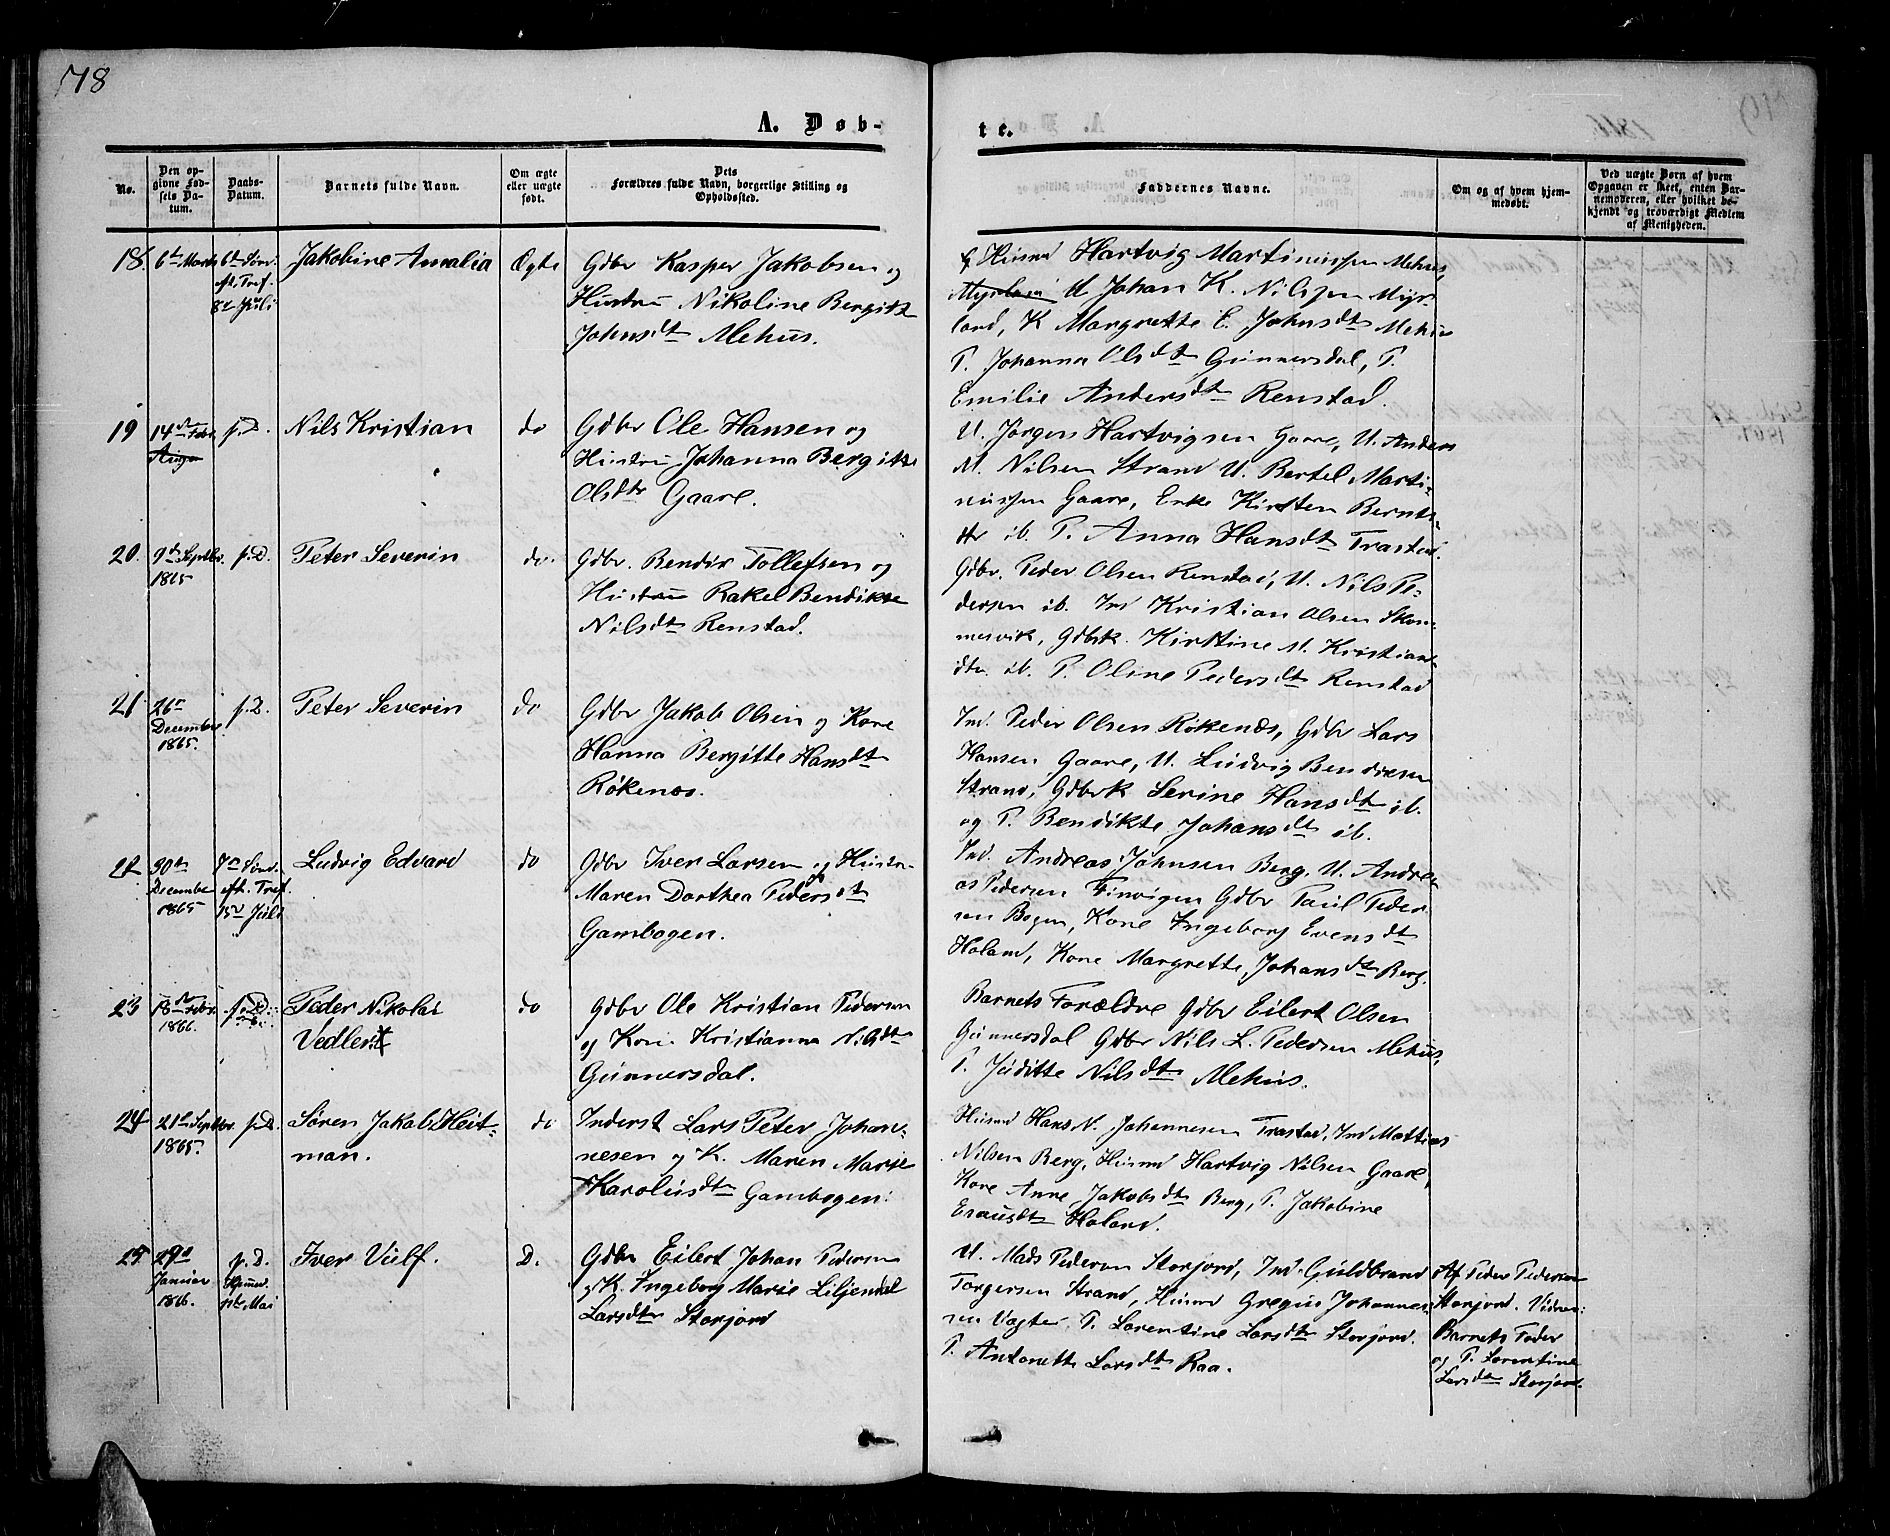 78
A. Døb-
te.
No.
Den op-
givne Fød-
sels Da-
tum.
Daabs-
Datum.
Barnets fulde Navn.
Om ægte
eller uægte
født.
Dets
Forældres fulde Navn, borgerlige Stilling og
Opholdssted.
Faddernes Navne.
Om og af hvem hjem-
medøbt.
Ved uægte Børn af hvem
Opgaven er skeet, enten Bar-
nemoderen, eller hvilket be-
kjendt og troværdigt Medlem
af Menigheden.
18.
6te Marts
6te Sønd.
eft. Tref.
8de Juli
Jakobine Amalia
Ægte
Gdbr Kasper Jakobsen og
Hustru Nikoline Bergitte
Johnsdtr Mehus.
Husmd Hartvig Martinussen Mehus,
U Johan K. Nilssen Myr-
land, K Margrette E. Johnsdtr Mehus
P. Johanna Olsdtr Gunnersdal, P.
Emilie Andersdtr Renstad.
19
14de Febr.
Aug
s.D.
Nils Kristian
do
Gdbr Ole Hansen og
Hustru Johanna Bergitte
Olsdtr Gaare.
U. Jørgen Hartvigsen Gaare, U. Anders
M. Nilsen Strand U. Bertel Marti-
nussen Gaare, Enke Kirsten Bernts-
dtr ib. P. Anna Hansdtr Trastad.
20.
9de Septbr.
1865
s.D.
Peter Severin
do.
Gdbr. Bendix Tollefsen og
Hustru Rakel Bendikte
Nilsdtr Renstad.
Gdbr. Peder Olsen Renstad, U. Nils Pe-
dersen ib. Ind Kristian Olsen Skom-
mesvik, Gdbrk. Kirstine M. Kristians-
dtr. ib. P. Oline Pedersdtr Renstad
21.
26de
December
1865.
s.D.
Peter Severin
do
Gdbr Jakob Olsen og Kone
Hanna Bergitte Hansdtr
Røkenæs.
Ind. Peder Olsen Røkenæs, Gdbr Lars
Hansen Gaare, U. Ludvig Bendixen
Strand, Gdbrk Serine Hansdtr ib.
og P. Bendikte Johansdtr ib.
22
30te
December
1865
7de Sønd.
eft. Tref.
15de Juli
Ludvig Edvard
do
Gdbr Iver Larsen og Hustru
Maren Dorthea Pedersdtr
Gambogen.
Ind. Andreas Johnsen Berg, U. Andre-
as Pedersen Finvigen Gdbr Paul Peder-
sen Bogen, Kone Ingeborg Evensdtr
Holand, Kone Margrette Johansdtr Berg.
23
18de Febr.
1866.
s.D.
Peder Nikolai
Vedler
do
Gdbr Ole Kristian Pedersen
og Kone Kristianna Nilsdtr
Gunnersdal.
Barnets Forældre Gdbr Eilert Olsen
Gunnersdal Gdbr Nils L. Pedersen Mehus,
P. Juditte Nilsdtr Mehus.
24
21de Septbr.
1865.
s.D.
Søren Jakob Heit-
man.
do
Inderst Lars Peter Johan-
nesen og K. Maren Marie
Karolusdtr Gambogen.
Husmd Hans N. Johannesen Trastad, Ind Mattias
Nilsen Berg, Husmd Hartvig Nilsen Gaare,
Kone Anne Jakobsdtr Berg, P. Jakobine
Holand.
25.
Januar
1866.
s.D.
Mai
Iver Vulf.
D.
Gdbr Eilert Johan Pedersen
og K. Ingeborg Marie Liljendal
Larsdtr Storjord
U. Mads Pedersen Storjord, Ind. Guldbrand
Torgersen Strand, Husmd Gregus Johannes-
sen Vogter, P. Lorentine Larsdtr Storjord.
P. Antonette Larsdtr Raa.
Af Peder Pedersen
Storjord. Vidner:
Barnets Fader
og P. Lorentine
Larsdtr Storjord.